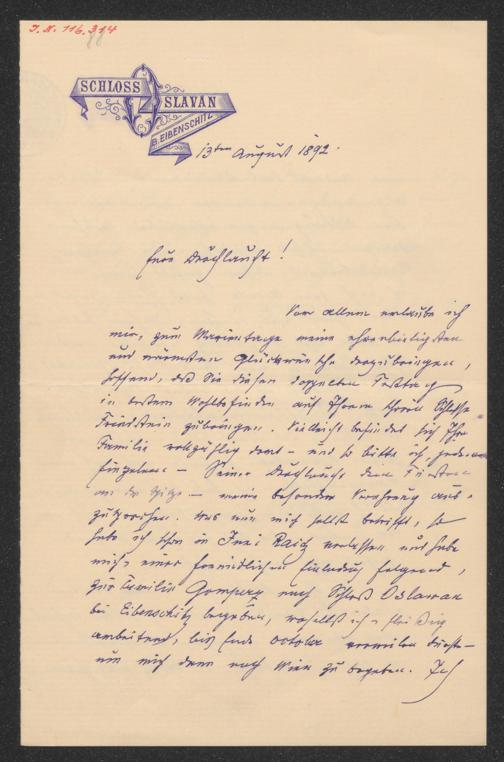 J. N. 116.314
88
SCHLOSS
OSLAVAN
B. EIBENSCHITZ
13ten August 1892.
Eure Durchlaucht!
Vor allem erlaube ich
mir, zum Marientage meine ehrerbietigsten
und wärmsten Glückwünsche darzubringen,
hoffend, daß Sie diesen doppelten Festtag
in bestem Wohlbefinden auf Ihrem schönen Schlosse
Friedstein zubringen. Vielleicht befindet sich Ihre
Familie vollzählig dort – und so bitte ich, jedem
Einzelnen – Seiner Durchlaucht dem Fürsten
an der Spitze – meine besondere Verehrung aus-
zusprechen. Was nun mich selbst betrifft, so
habe ich schon im Juni Raitz verlassen und habe
mich, einer freundlichen Einladung folgend,
zur Familie Gomperz nach Schloß Oslavan
bei Eibenschitz begeben, woselbst ich, fleißig
arbeitend, bis Ende October verweilen dürfte –
um mich dann nach Wien zu begeben. Ich